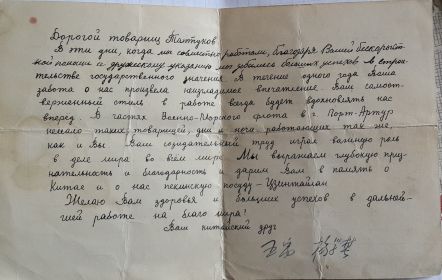 Дорогой товарищ Таттуков
В эти дни, когда мы совместно работали, благодаря Вашей бескорыст-
ной помощи и дружескому указанию мы добились больших успехов в строи-
тельстве государственного значения. В течение одного года Ваша
забота о нас произвела неизгладимое впечатление. Ваш самоот-
верженный стиль в работе всегда будет вдохновлять нас
вперед. В частях Военно-Морского флота в г. Порт-Артур
немало таких товарищей, дни и ночи работающих так же,
как и Вы Ваш созидательный труд играл важную роль
в деле мира во всем мире Мы выражаем глубокую при-
знательность и благодарность дарим Вам в память о
Китае и о нас пекинскую посуду - Цзинтайлан
Желаю Вам здоровья и больших успехов в дальней-
шей работе на благо мира!
Ваш китайский друг